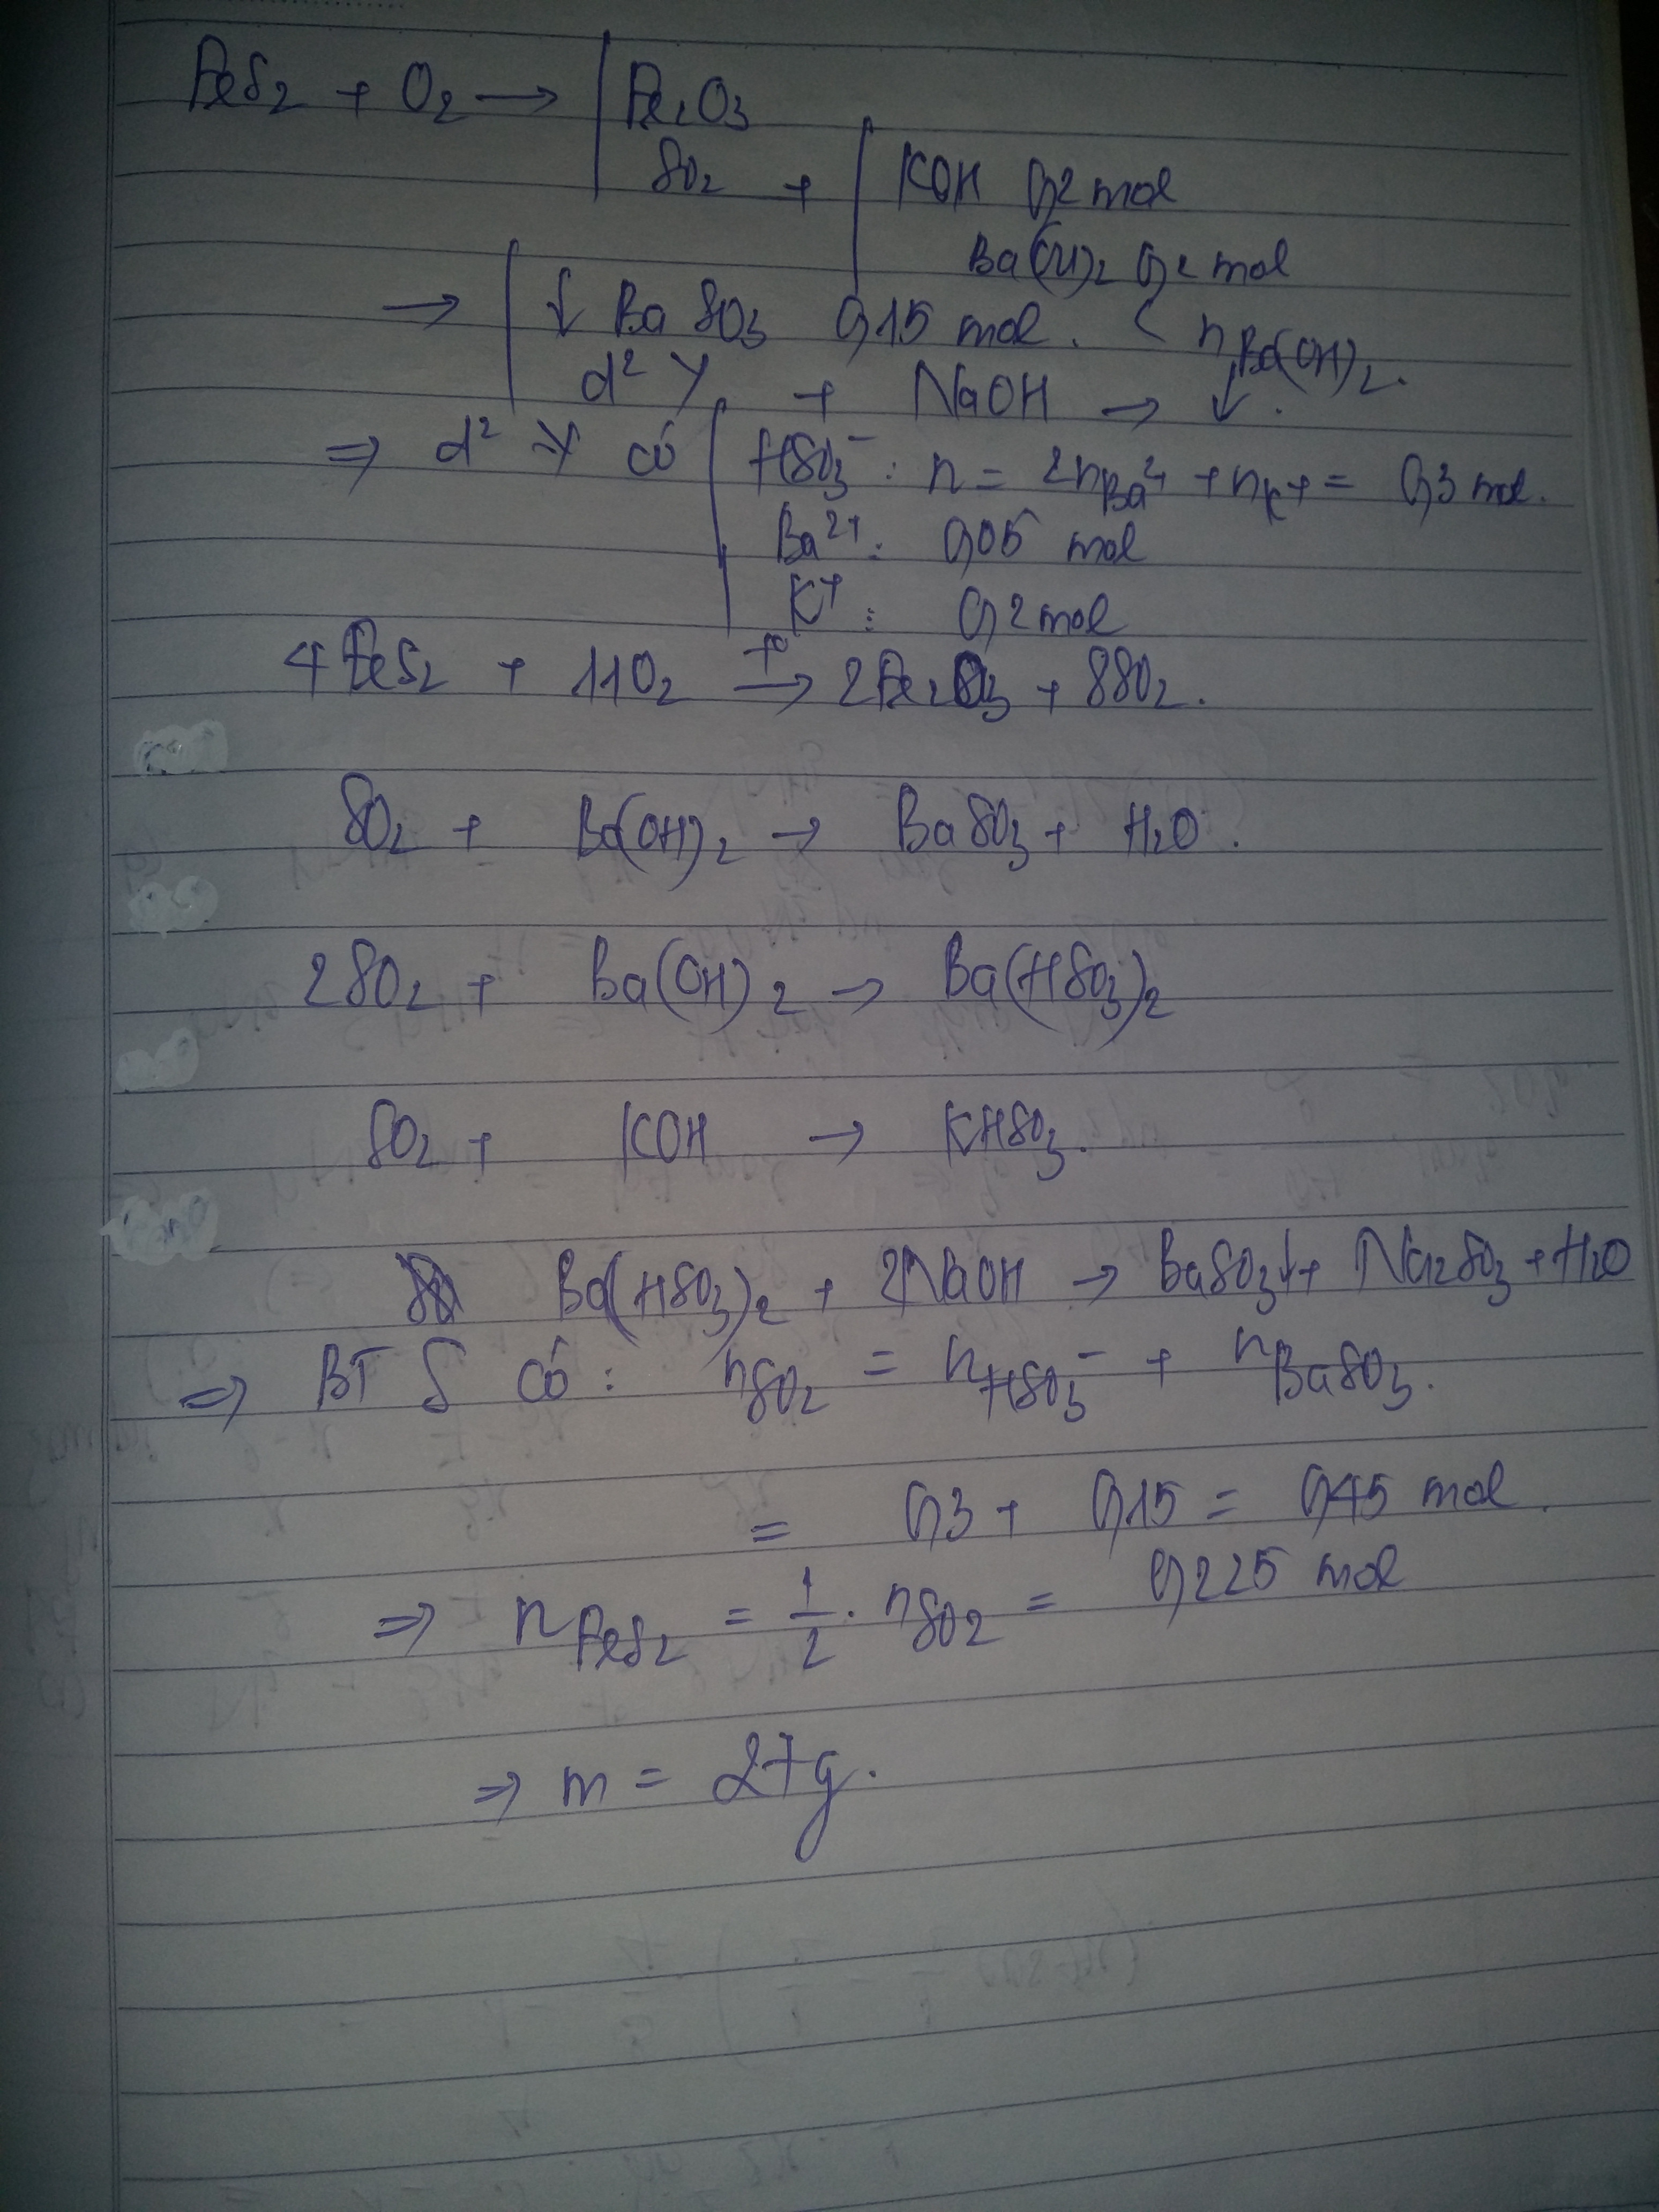 FeS2 + O2 → | Fe2O3
SO2 + | KOH 0,2 mol
Ba(OH)2 0,2 mol
→ | ↓ BaSO3 0,15 mol. < nBa(OH)2.
d² Y + NaOH → ↓.
⇒ d² Y có | HSO3⁻ : n = 2nBa²⁺ + nK+ = 0,3 mol.
Ba²⁺ : 0,05 mol
K⁺ : 0,2 mol
4FeS2 + 11O2 →(t°) 2Fe2O3 + 8SO2.
SO2 + Ba(OH)2 → BaSO3 + H2O.
2SO2 + Ba(OH)2 → Ba(HSO3)2
SO2 + KOH → KHSO3.
Ba(HSO3)2 + 2NaOH → BaSO3↓ + Na2SO3 + H2O
⇒ BT S có : nSO2 = nHSO3⁻ + nBaSO3.
= 0,3 + 0,15 = 0,45 mol.
⇒ nFeS2 = 1/2 . nSO2 = 0,225 mol
⇒ m = 27g.